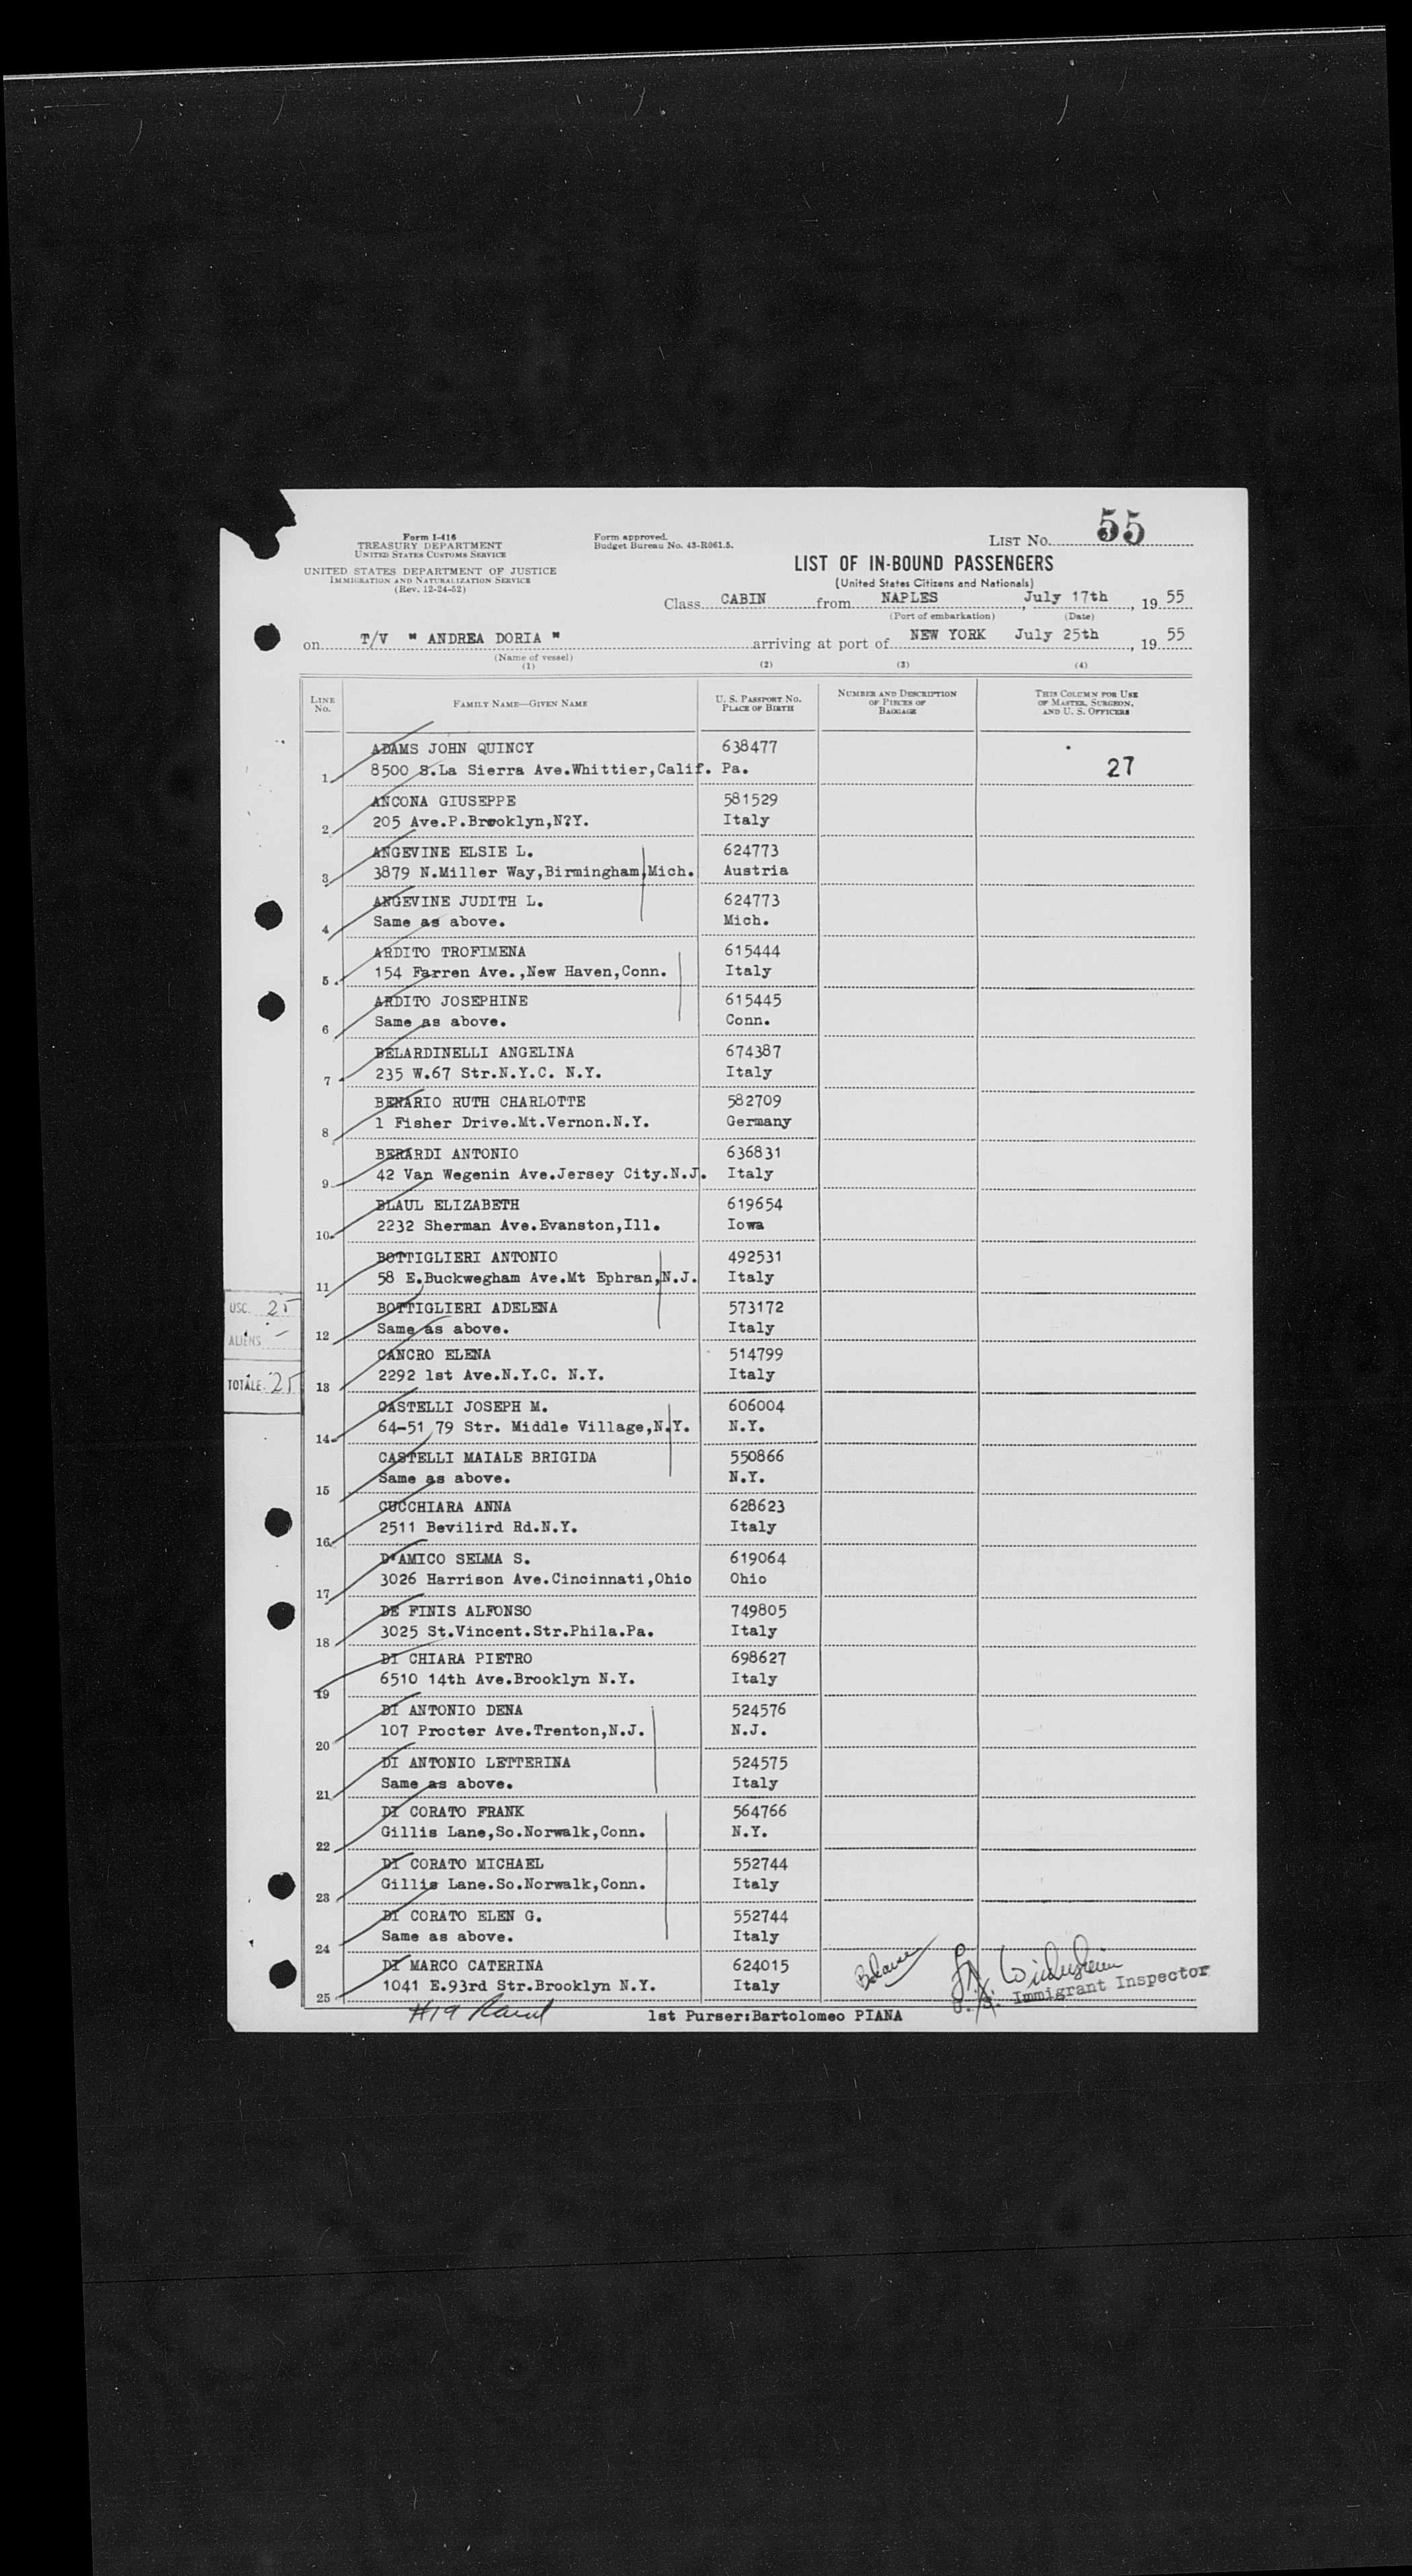 Form I-416
TREASURY DEPARTMENT
UNITED STATES CUSTOMS SERVICE
UNITED STATES DEPARTMENT OF JUSTICE
IMMIGRATION AND NATURALIZATION SERVICE
(Rev. 12-24-52)
Form approved.
Budget Bureau No. 43-R061.5.
LIST NO. 55
LIST OF IN-BOUND PASSENGERS
(United States Citizens and Nationals)
Class CABIN from NAPLES, July 17th, 19 55
(Port of embarkation) (Date)
on T/V " ANDREA DORIA " arriving at port of NEW YORK July 25th, 19 55
(Name of vessel)
(1) (2) (3) (4)
LINE NO. FAMILY NAME—GIVEN NAME U. S. PASSPORT NO. PLACE OF BIRTH NUMBER AND DESCRIPTION OF PIECES OF BAGGAGE THIS COLUMN FOR USE OF MASTER, SURGEON, AND U. S. OFFICERS
ADAMS JOHN QUINCY 638477
1 8500 S.La Sierra Ave.Whittier,Calif. Pa. 27
ANCONA GIUSEPPE 581529
2 205 Ave.P.Brooklyn,N?Y. Italy
ANGEVINE ELSIE L. 624773
3 3879 N.Miller Way,Birmingham,Mich. Austria
ANGEVINE JUDITH L. 624773
4 Same as above. Mich.
ARDITO TROFIMENA 615444
5 154 Farren Ave.,New Haven,Conn. Italy
ARDITO JOSEPHINE 615445
6 Same as above. Conn.
BELARDINELLI ANGELINA 674387
7 235 W.67 Str.N.Y.C. N.Y. Italy
BENARIO RUTH CHARLOTTE 582709
8 1 Fisher Drive.Mt.Vernon.N.Y. Germany
BERARDI ANTONIO 636831
9 42 Van Wegenin Ave.Jersey City.N.J. Italy
BLAUL ELIZABETH 619654
10 2232 Sherman Ave.Evanston,Ill. Iowa
BOTTIGLIERI ANTONIO 492531
11 58 E.Buckwegham Ave.Mt Ephran,N.J. Italy
BOTTIGLIERI ADELENA 573172
12 Same as above. Italy
CANCRO ELENA 514799
13 2292 1st Ave.N.Y.C. N.Y. Italy
CASTELLI JOSEPH M. 606004
14 64-51 79 Str. Middle Village,N.Y. N.Y.
CASTELLI MAIALE BRIGIDA 550866
15 Same as above. N.Y.
CUCCHIARA ANNA 628623
16 2511 Bevilird Rd.N.Y. Italy
D'AMICO SELMA S. 619064
17 3026 Harrison Ave.Cincinnati,Ohio Ohio
DE FINIS ALFONSO 749805
18 3025 St.Vincent.Str.Phila.Pa. Italy
DI CHIARA PIETRO 698627
19 6510 14th Ave.Brooklyn N.Y. Italy
DI ANTONIO DENA 524576
20 107 Procter Ave.Trenton,N.J. N.J.
DI ANTONIO LETTERINA 524575
21 Same as above. Italy
DI CORATO FRANK 564766
22 Gillis Lane,So.Norwalk,Conn. N.Y.
DI CORATO MICHAEL 552744
23 Gillis Lane.So.Norwalk,Conn. Italy
DI CORATO ELEN G. 552744
24 Same as above. Italy
DI MARCO CATERINA 624015
25 1041 E.93rd Str.Brooklyn N.Y. Italy
USC. 25
ALIENS -
TOTALE. 25
U. S. Immigrant Inspector
#19
1st Purser:Bartolomeo PIANA